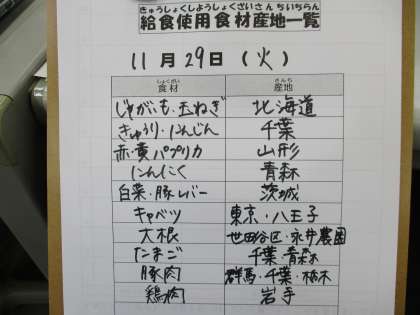 きゅうしょくしようしょくざいさんちいちらん
給食使用食材産地一覧
11月29日(火)
しょくざい さんち
食材 産地
じゃがいも・玉ねぎ 北海道
きゅうり・にんじん 千葉
赤・黄パプリカ 山形
にんにく 青森
白菜・豚レバー 茨城
キャベツ 東京・八王子
大根 世田谷区・永井農園
たまご 千葉・青森
豚肉 群馬・千葉・栃木
鶏肉 岩手